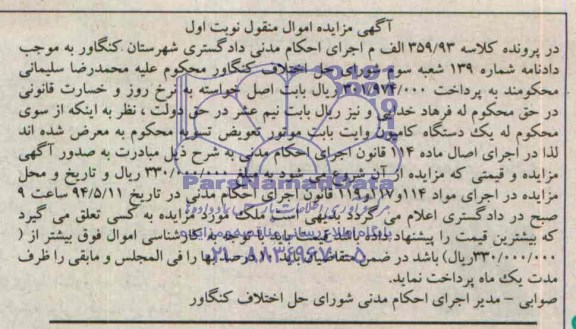 آگهی مزایده اموال منقول نوبت اول
در پرونده کلاسه ۳۵۹/۹۳ الف م اجرای احکام مدنی دادگستری شهرستان کنگاور به موجب
دادنامه شماره ۱۳۹ شعبه سوم شورای حل اختلاف کنگاور محکوم علیه محمدرضا سلیمانی
محکومند به پرداخت ۳۰۱/۹۷۴/۰۰۰ ریال بابت اصل خواسته به نرخ روز و خسارت قانونی
در حق محکوم له فرهاد خدایی و نیز ریال بابت نیم عشر در حق دولت ، نظر به اینکه از سوی
محکوم له یک دستگاه کامیون وایت بابت موتور تعویض تسویه محکوم به معرض شده اند
لذا در اجرای اصال ماده ۱۱۴ قانون اجرای احکام مدنی به شرح ذیل مبادرت به صدور آگهی
مزایده و قیمتی که مزایده از آن شروع می شود به مبلغ ۳۳۰/۰۰۰/۰۰۰ ریال و تاریخ و محل
مزایده در اجرای مواد ۱۱۴و۱۱۷و۱۱۹ قانون اجرای احکام مدنی در تاریخ ۹۴/۵/۱۱ ساعت ۹
صبح در دادگستری اعلام می گردد بدیهی است ملک مورد مزایده به کسی تعلق می گیرد
که بیشترین قیمت را پیشنهاد داده باشد قیمت باید با توجه به کارشناسی اموال فوق بیشتر از (
۳۳۰/۰۰۰/۰۰۰ریال) باشد در ضمن متقاضیان باید ۱۰ درصد بها را فی المجلس و مابقی را ظرف
مدت یک ماه پرداخت نماید.
صوابی – مدیر اجرای احکام مدنی شورای حل اختلاف کنگاور
ParsNamadData
۰۲۱-۸۸۳۴۹۶۷۰-۵